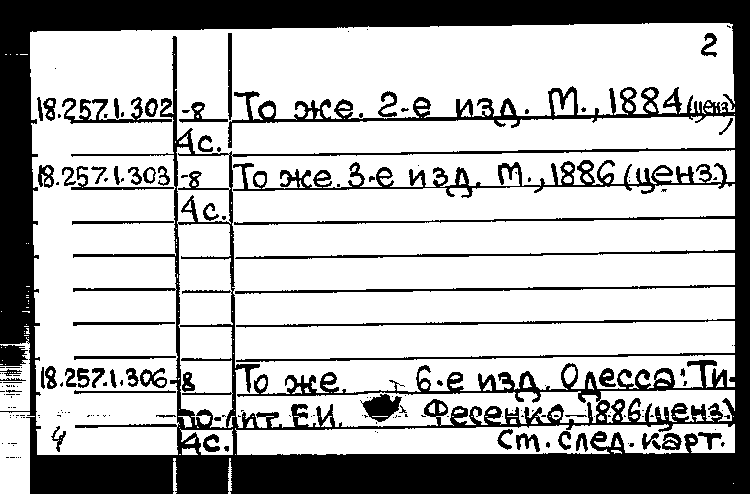 2
18.257.1.302 -8 То же. 2-е изд. М., 1884 (ценз)
4с.
18.257.1.303 -8 То же. 3-е изд. М., 1886 (ценз.)
4с.
18.257.1.306-8 То же. 6-е изд. Одесса: Ти-
по-лит. Е.И. Фесенко, 1886 (ценз)
4 4с. См. след. карт.